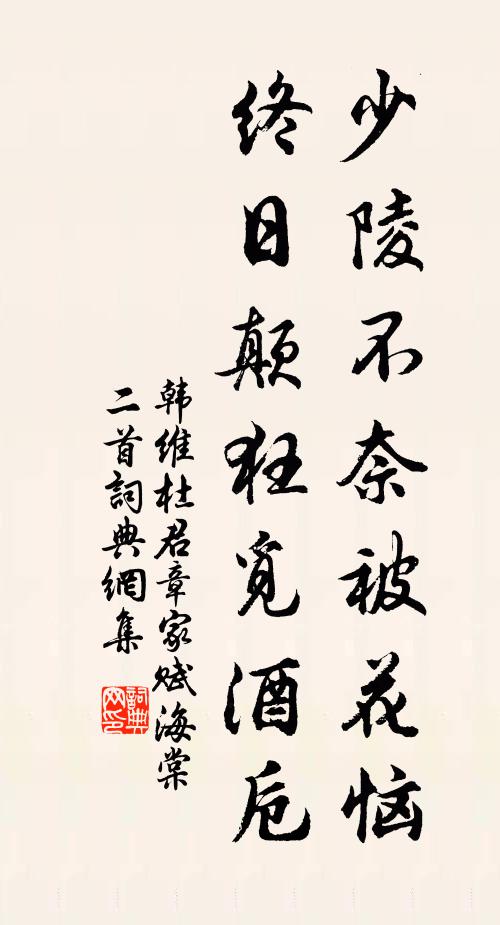 少陵不奈被花恼
终日颠狂觅酒卮
韩维杜君章家赋海棠
二首詞典網集
詞典网印